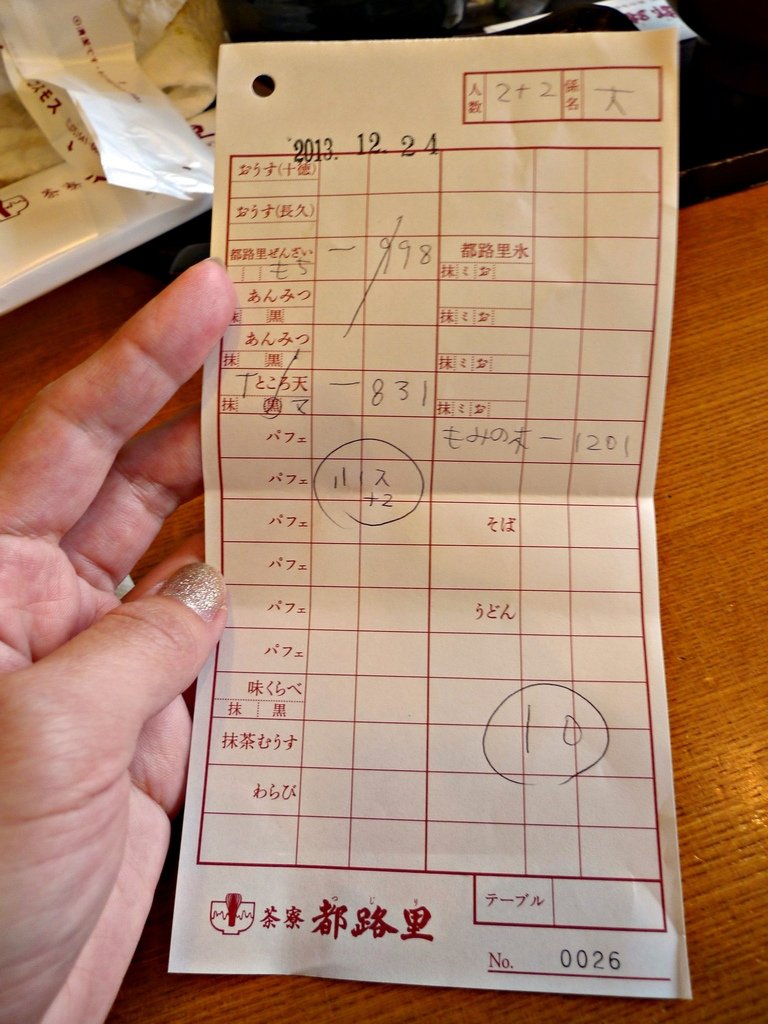 モス
茶寮
人数 2+2 係名 大
2013. 12. 24
おうす(十徳)
おうす(長久)
都路里ぜんざい 一 998 都路里氷
もち 抹 ミ お
あんみつ
抹 黒 抹 ミ お
あんみつ
抹 黒 抹 ミ お
ところ天 一 831
抹 黒 マ 抹 ミ お
パフェ もみの木 一 1201
パフェ
+2
パフェ そば
パフェ
パフェ うどん
パフェ
味くらべ
抹 黒
10
抹茶むうす
わらび
テーブル
茶寮 都路里
つじり
No. 0026